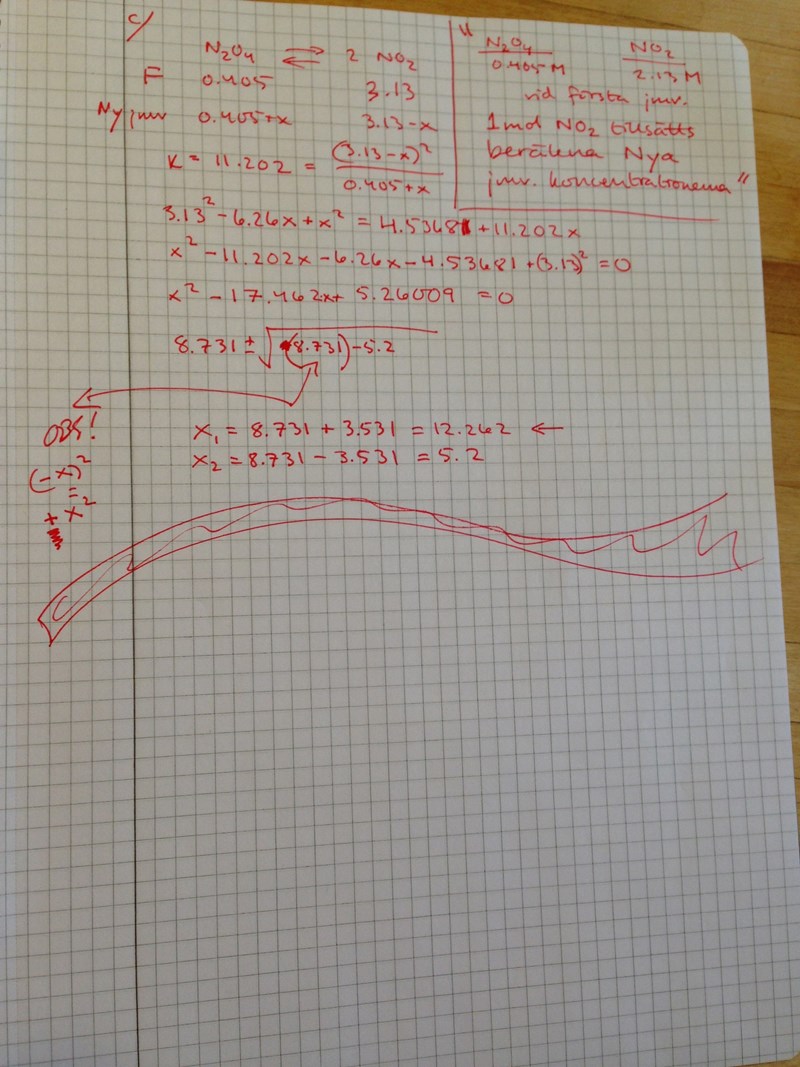 c/
N₂O₄ ⇌ 2 NO₂
F 0.405 3.13
Ny jmv 0.405+x 3.13-x
K = 11.202 = (3.13-x)² / 0.405+x
"N₂O₄ NO₂
0.405 M 2.13 M
vid första jmv.
1 mol NO₂ tillsätts
beräkna Nya
jmv. koncentrationerna"
3.13² - 6.26x + x² = 4.53681 + 11.202x
x² - 11.202x - 6.26x - 4.53681 + (3.13)² = 0
x² - 17.462x + 5.26009 = 0
8.731 ± √(8.731)-5.2
OBS!
(-x)²
=
+x²
x₁ = 8.731 + 3.531 = 12.262 ←
x₂ = 8.731 - 3.531 = 5.2